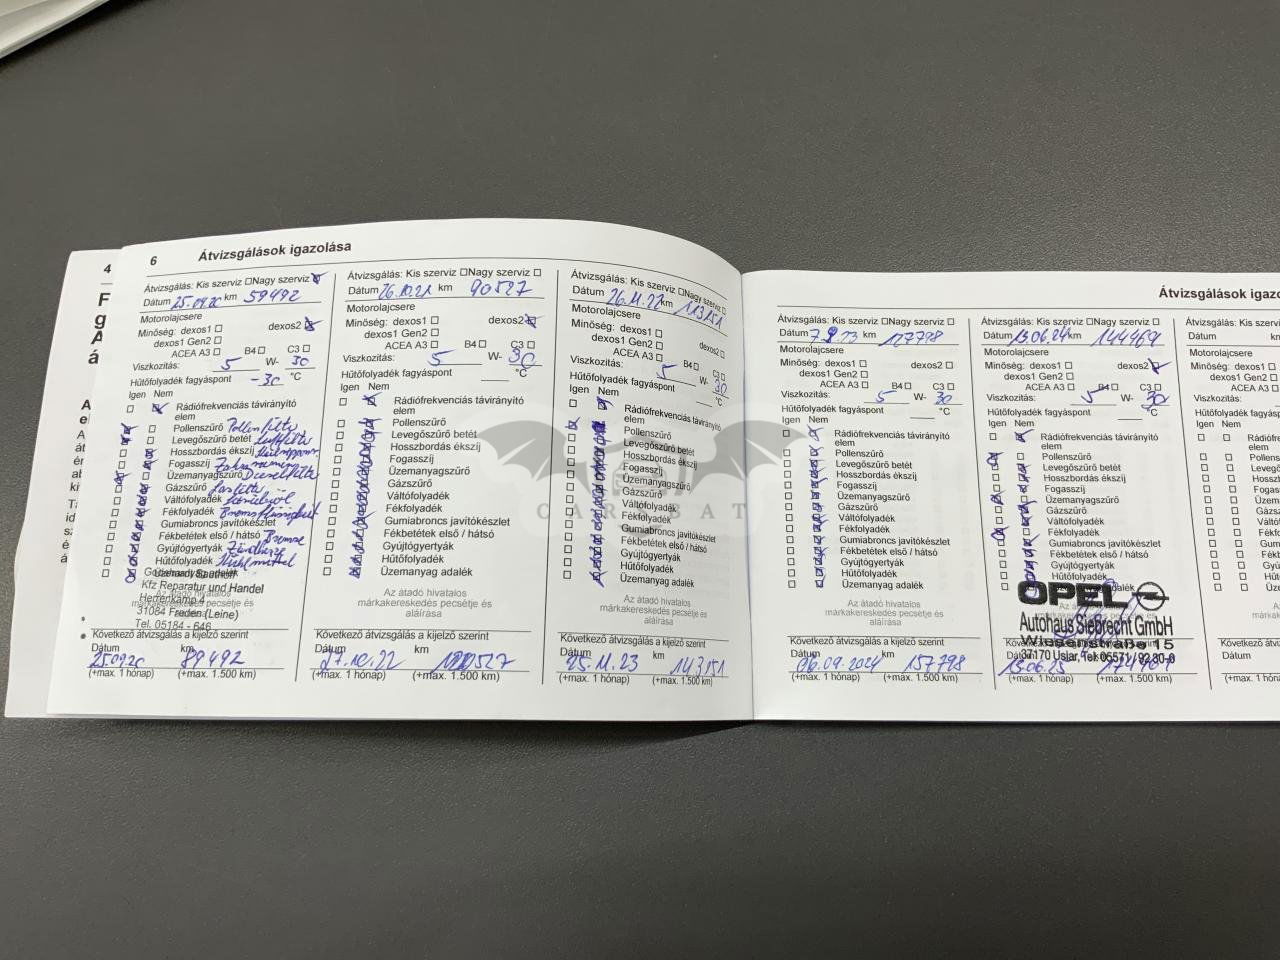 4
F
g
Á
á
6 Átvizsgálások igazolása
Átvizsgálás: Kis szerviz □Nagy szerviz
Dátum 25.09.20 km 59492
Motorolajcsere
Minőség: dexos1 □ dexos2
dexos1 Gen2 □
ACEA A3 □ B4 □ C3 □
Viszkozitás: 5 W- 30
Hűtőfolyadék fagyáspont -30 °C
Igen Nem
Rádiófrekvenciás távirányító
elem
Pollenszűrő
Levegőszűrő betét
Hosszbordás ékszíj
Fogasszíj
Üzemanyagszűrő
Gázszűrő
Váltófolyadék
Fékfolyadék
Gumiabroncs javítókészlet
Fékbetétek első / hátsó Bremse
Gyújtógyertyák
Hűtőfolyadék Kühlmittel
Kfz Reparatur und Handel
Herrenkamp 4
31084 Freden (Leine)
Tel. 05184 - 646
Az átadó hivatalos
márkakereskedés pecsétje és
Következő átvizsgálás a kijelző szerint
Dátum km
25.09.20 89492
(+max. 1 hónap) (+max. 1.500 km)
Átvizsgálás: Kis szerviz □Nagy szerviz □
Dátum 26.10.21 km 90527
Motorolajcsere
Minőség: dexos1 □ dexos2
dexos1 Gen2 □
ACEA A3 □ B4 □ C3 □
Viszkozitás: 5 W- 30
Hűtőfolyadék fagyáspont °C
Igen Nem
Rádiófrekvenciás távirányító
elem
Pollenszűrő
Levegőszűrő betét
Hosszbordás ékszíj
Fogasszíj
Üzemanyagszűrő
Gázszűrő
Váltófolyadék
Fékfolyadék
Gumiabroncs javítókészlet
Fékbetétek első / hátsó
Gyújtógyertyák
Hűtőfolyadék
Üzemanyag adalék
Az átadó hivatalos
márkakereskedés pecsétje és
aláírása
Következő átvizsgálás a kijelző szerint
Dátum km
27.10.22
(+max. 1 hónap) (+max. 1.500 km)
Átvizsgálás: Kis szerviz □Nagy szerviz □
Dátum 26.11.22 km 113151
Motorolajcsere
Minőség: dexos1 □ dexos2 □
dexos1 Gen2 □
ACEA A3 □ B4 □ C3 □
Viszkozitás: 5 W- 30
Hűtőfolyadék fagyáspont °C
Igen Nem
Rádiófrekvenciás távirányító
elem
Pollenszűrő
Levegőszűrő betét
Hosszbordás ékszíj
Fogasszíj
Üzemanyagszűrő
Gázszűrő
Váltófolyadék
Fékfolyadék
Gumiabroncs javítókészlet
Fékbetétek első / hátsó
Gyújtógyertyák
Hűtőfolyadék
Üzemanyag adalék
Az átadó hivatalos
márkakereskedés pecsétje és
aláírása
Következő átvizsgálás a kijelző szerint
Dátum km
25.11.23 143151
(+max. 1 hónap) (+max. 1.500 km)
Átvizsgálások igazo
Átvizsgálás: Kis szerviz □Nagy szerviz □
Dátum km 127798
Motorolajcsere
Minőség: dexos1 □ dexos2 □
dexos1 Gen2 □
ACEA A3 □ B4 □ C3 □
Viszkozitás: 5 W- 30
Hűtőfolyadék fagyáspont °C
Igen Nem
Rádiófrekvenciás távirányító
elem
Pollenszűrő
Levegőszűrő betét
Hosszbordás ékszíj
Fogasszíj
Üzemanyagszűrő
Gázszűrő
Váltófolyadék
Fékfolyadék
Gumiabroncs javítókészlet
Fékbetétek első / hátsó
Gyújtógyertyák
Hűtőfolyadék
Üzemanyag adalék
Az átadó hivatalos
márkakereskedés pecsétje és
aláírása
Következő átvizsgálás a kijelző szerint
Dátum km
06.09.2024 157798
(+max. 1 hónap) (+max. 1.500 km)
Átvizsgálás: Kis szerviz □Nagy szerviz □
Dátum 13.06.24 km 144964
Motorolajcsere
Minőség: dexos1 □ dexos2
dexos1 Gen2 □
ACEA A3 □ B4 □ C3 □
Viszkozitás: 5 W- 30
Hűtőfolyadék fagyáspont °C
Igen Nem
Rádiófrekvenciás távirányító
elem
Pollenszűrő
Levegőszűrő betét
Hosszbordás ékszíj
Fogasszíj
Üzemanyagszűrő
Gázszűrő
Váltófolyadék
Fékfolyadék
Gumiabroncs javítókészlet
Fékbetétek első / hátsó
Gyújtógyertyák
Hűtőfolyadék
OPEL
Autohaus Siebrecht GmbH
Wiesenstraße 15
37170 Uslar, Tel 05571 / 92 80-0
13.06.25 174964
(+max. 1 hónap) (+max. 1.500 km)
Átvizsgálás: Kis s
Dátum
Motorolajcsere
Minőség: dexos1
dexos1 Gen2
ACEA A
Viszkozitás:
Hűtőfolyadék fag
Igen Nem
Rádiófr
elem
Pollens
Levegős
Hosszbo
Fogassz
Üzeman
Gázszűr
Váltófoly
Fékfoly
Gumiab
Fékbetét
Gyújtógy
Hűtőfoly
Üzeman
Az á
márkake
Következő átvizs
Dátum
(+max. 1 hónap)
CARABAT